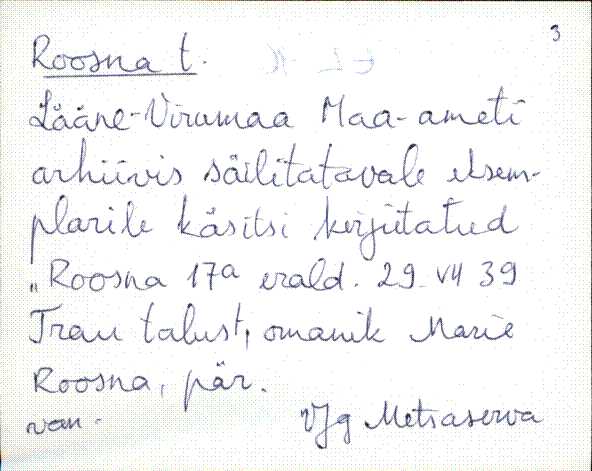 3
Roosna t.
Lääne-Virumaa Maa-ameti
arhiivis säilitatavale eksem-
plarile käsitsi kirjutatud
„Roosna 17a erald. 29. VII 39
Trau talust, omanik Marie
Roosna, pär.
van. VJg Metsaserva